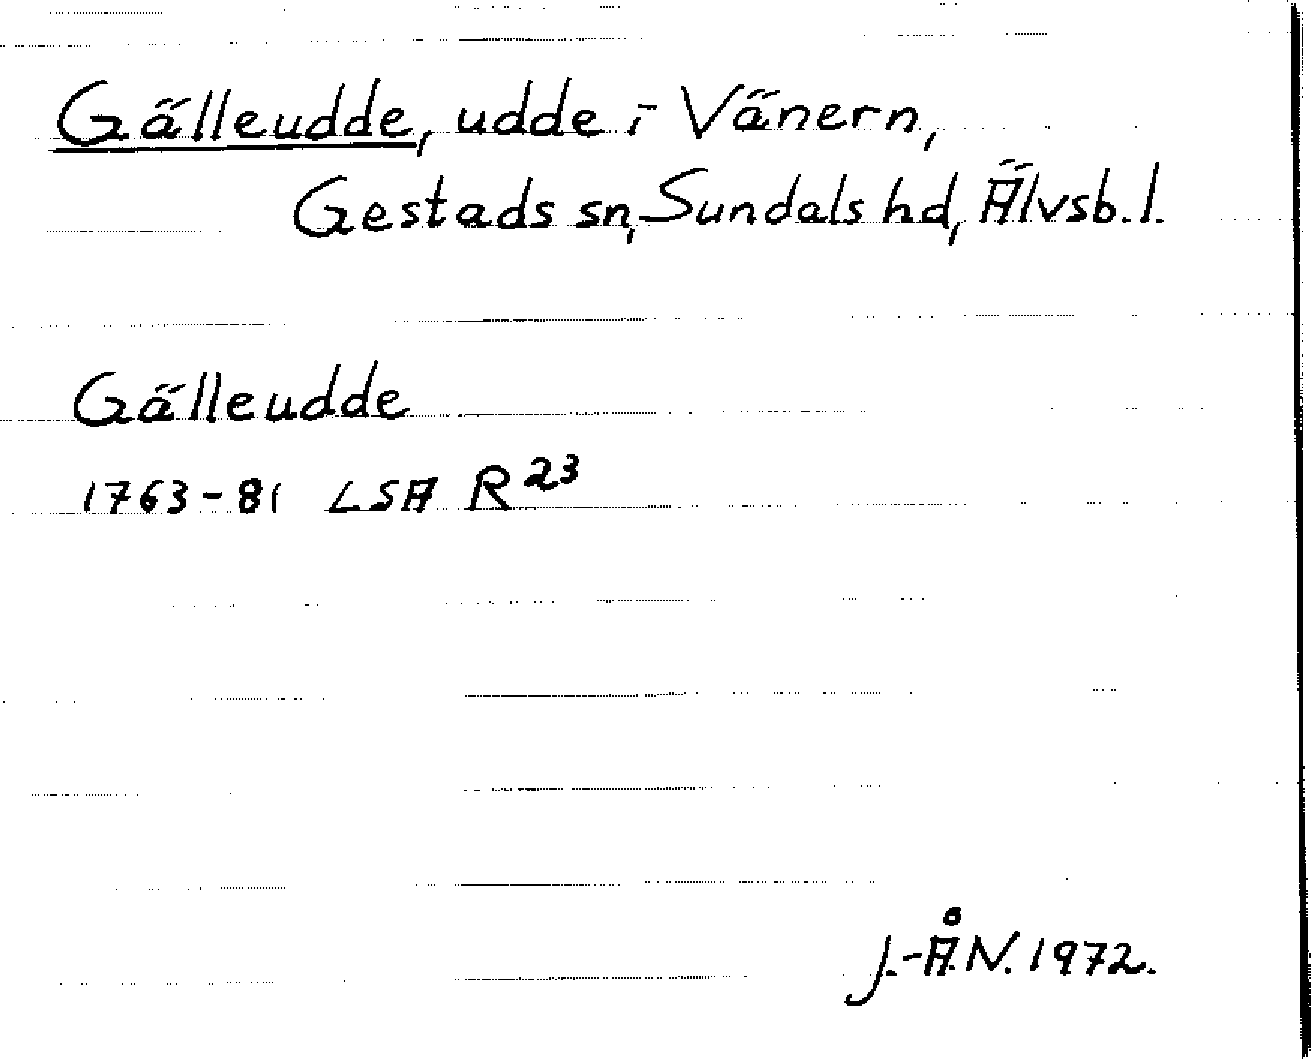 Gälleudde, udde i Vänern,
Gestads sn, Sundals hd, Älvsb. l.
Gälleudde
1763-81 LSA R 23
J.-Å.N. 1972.